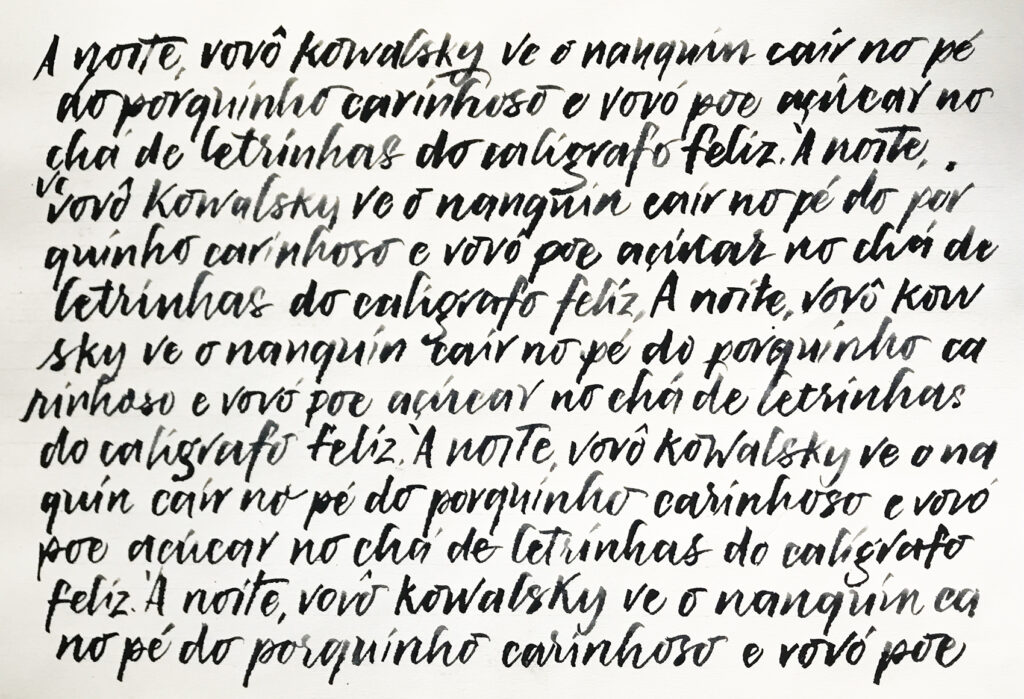 A noite, vovô Kowalsky ve o nanquin cair no pé
do porquinho carinhoso e vovó poe açúcar no
chá de letrinhas do caligrafo feliz. À noite,
vc
vovô Kowalsky ve o nanquin cair no pé do por
quinho carinhoso e vovó poe açúcar no chá de
letrinhas do caligrafo feliz, A noite, vovô Kow
sky ve o nanquin cair no pé do porquinho ca
rinhoso e vovó poe açúcar no chá de letrinhas
do caligrafo feliz. À noite, vovô Kowalsky ve o na
quin cair no pé do porquinho carinhoso e vovó
poe açúcar no chá de letrinhas do caligrafo
feliz. À noite, vovô Kowalsky ve o nanquin ca
no pé do porquinho carinhoso e vovó poe